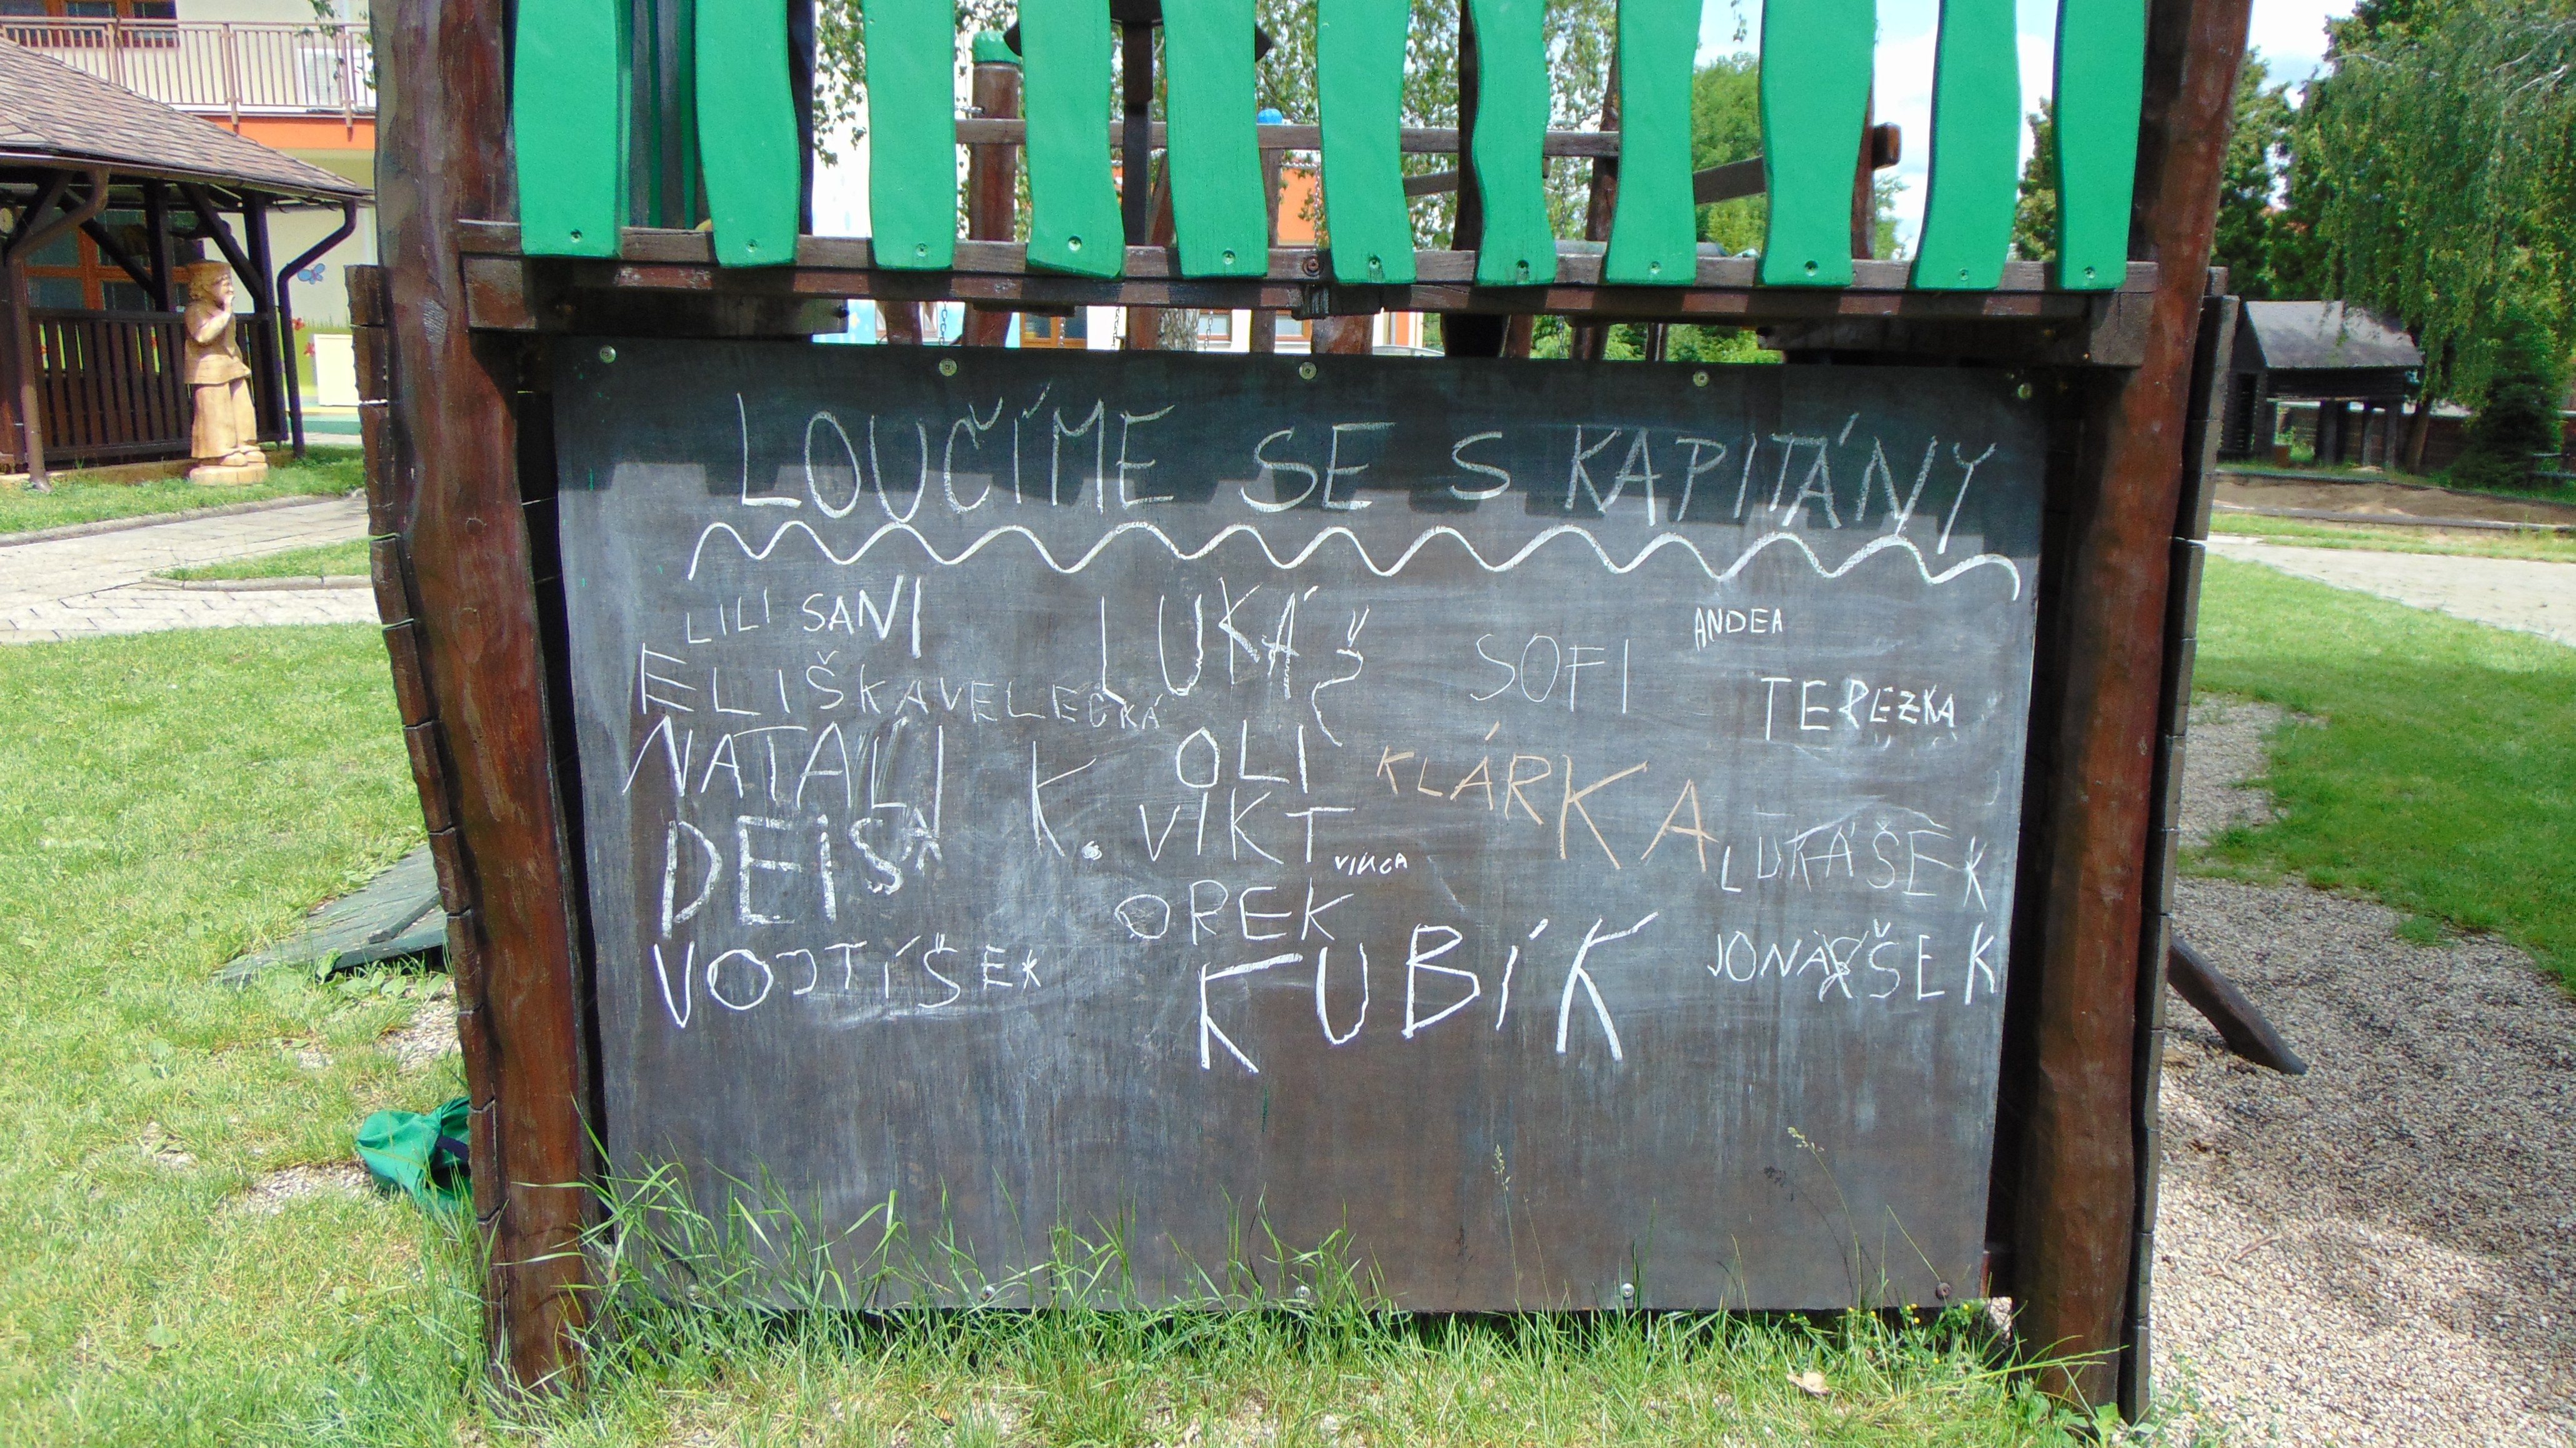 LOUČÍME SE S KAPITÁNY
LILI SANI
LUKÁŠ
SOFI
ANDEA
ELIŠKAVELECKÁ
TEREZKA
NATALI K.
OLI
KLÁRKA
DEISA
VIKT
VINCA
LUKÁŠEK
OREK
VOJTÍŠEK
KUBÍK
JONÁŠEK